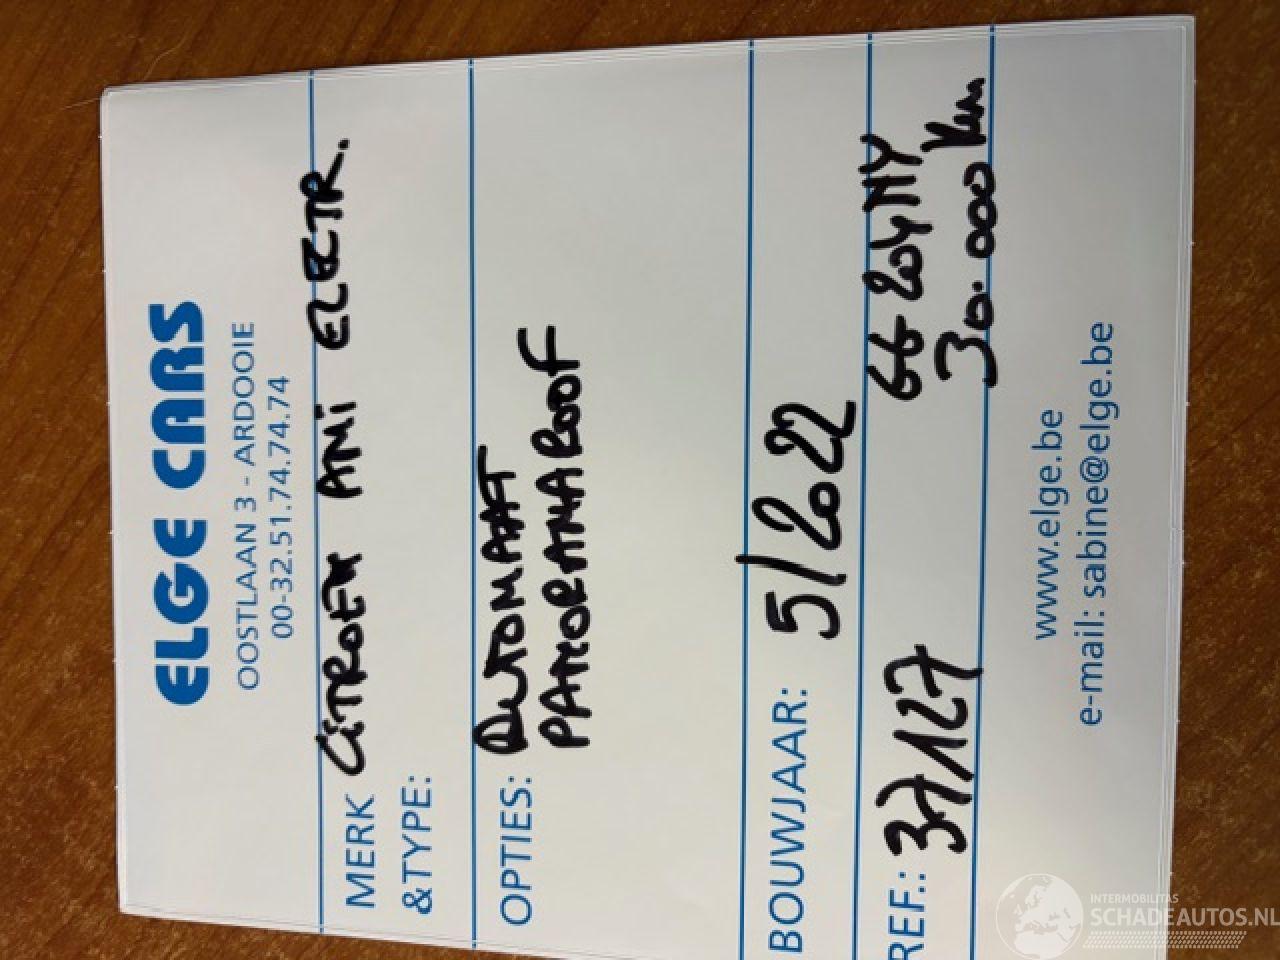 ELGE CARS
OOSTLAAN 3 - ARDOOIE
00-32.51.74.74.74
MERK CITROEN AMI ELECTR.
&TYPE:
OPTIES: AUTOMAAT
PANORAMAROOF
BOUWJAAR: 5/2022
REF.: 37127
30.000 km
www.elge.be
e-mail: sabine@elge.be
INTERMOBILITAS
SCHADEAUTOS.NL